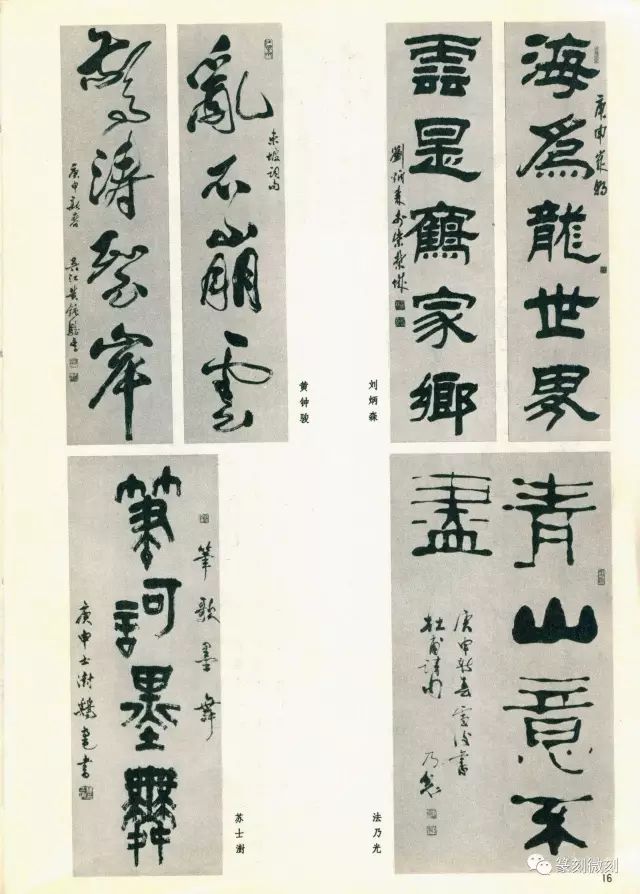 亂石崩雲
東坡詞句
驚濤裂岸
庚申新春 吳江黃鐘駿書
黄钟骏
海爲龍世界
庚申歲朝
雲是鶴家鄉
劉炳森
刘炳森
筆訶墨舞
筆歌墨舞
庚申士澍
苏士澍
青山意不
盡
庚申新春
杜甫詩句
乃光
法乃光
篆刻微刻
16